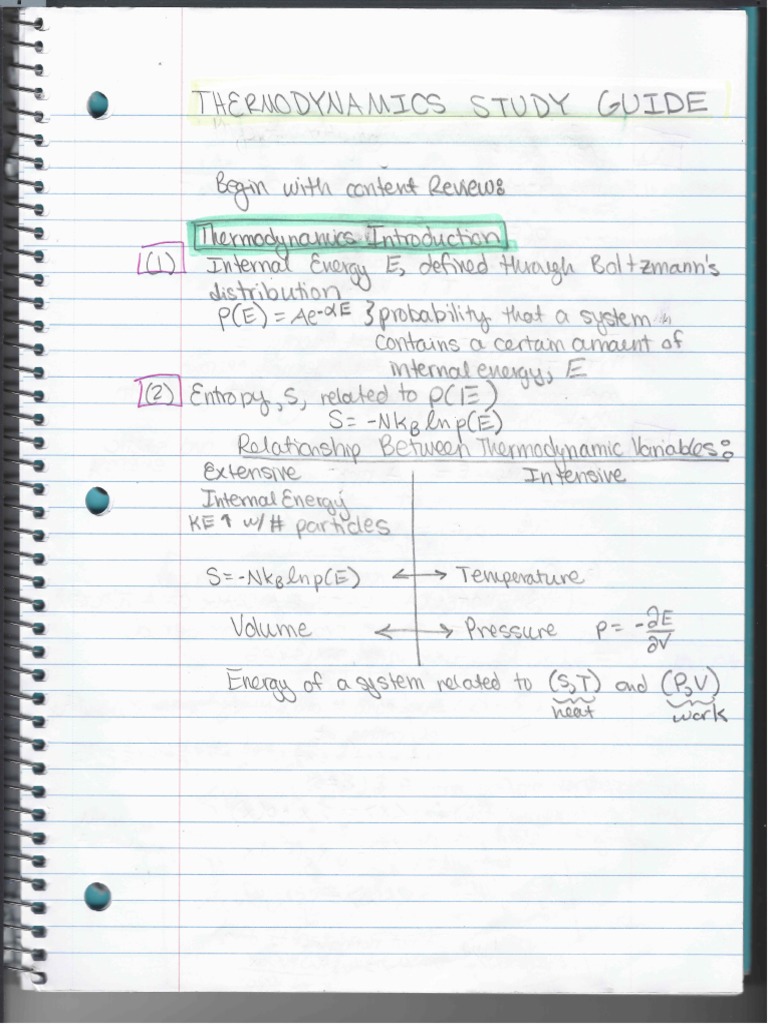 THERMODYNAMICS STUDY GUIDE
Begin with content Review:
Thermodynamics Introduction
(1) Internal Energy E, defined through Boltzmann's
distribution
P(E) = Ae^-αE } probability that a system
contains a certain amount of
internal energy, E
(2) Entropy, S, related to p(E)
S = -Nk_B ln p(E)
Relationship Between Thermodynamic Variables:
Extensive Intensive
Internal Energy
KE ↑ w/ # particles
S = -Nk_B ln p(E) ↔ Temperature
Volume ↔ Pressure P = -∂E/∂V
Energy of a system related to (S,T) and (P,V)
heat work